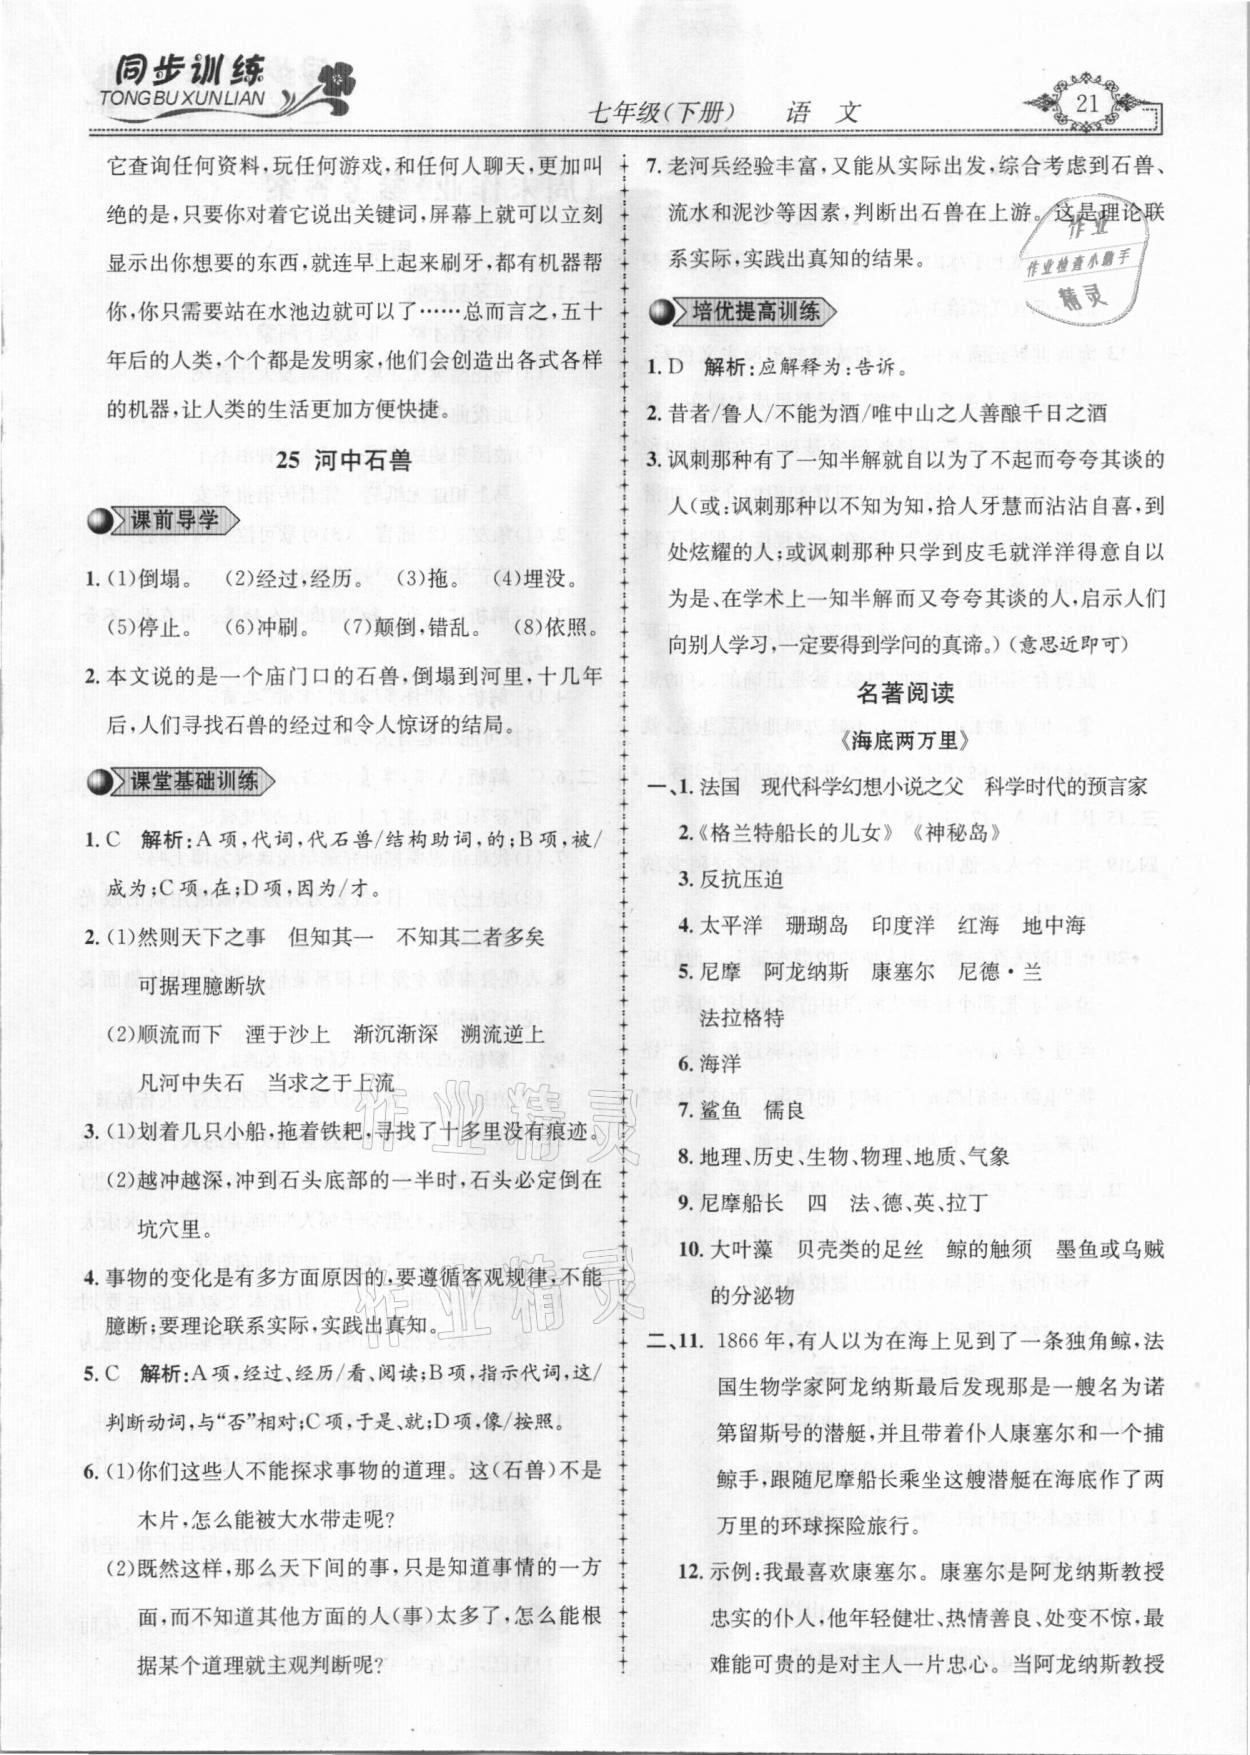 同步训练
TONGBUXUNLIAN
七年级(下册) 语 文
21
它查询任何资料,玩任何游戏,和任何人聊天,更加叫
绝的是,只要你对着它说出关键词,屏幕上就可以立刻
显示出你想要的东西,就连早上起来刷牙,都有机器帮
你,你只需要站在水池边就可以了……总而言之,五十
年后的人类,个个都是发明家,他们会创造出各式各样
的机器,让人类的生活更加方便快捷。
25 河中石兽
课前导学
1. (1)倒塌。 (2)经过,经历。 (3)拖。 (4)埋没。
(5)停止。 (6)冲刷。 (7)颠倒,错乱。 (8)依照。
2. 本文说的是一个庙门口的石兽,倒塌到河里,十几年
后,人们寻找石兽的经过和令人惊讶的结局。
课堂基础训练
1. C 解析:A项,代词,代石兽/结构助词,的;B项,被/
成为;C项,在;D项,因为/才。
2. (1)然则天下之事 但知其一 不知其二者多矣
可据理臆断欤
(2)顺流而下 湮于沙上 渐沉渐深 溯流逆上
凡河中失石 当求之于上流
3. (1)划着几只小船,拖着铁耙,寻找了十多里没有痕迹。
(2)越冲越深,冲到石头底部的一半时,石头必定倒在
坑穴里。
4. 事物的变化是有多方面原因的,要遵循客观规律,不能
臆断;要理论联系实际,实践出真知。
5. C 解析:A项,经过、经历/看、阅读;B项,指示代词,这/
判断动词,与“否”相对;C项,于是、就;D项,像/按照。
6. (1)你们这些人不能探求事物的道理。这(石兽)不是
木片,怎么能被大水带走呢?
(2)既然这样,那么天下间的事,只是知道事情的一方
面,而不知道其他方面的人(事)太多了,怎么能根
据某个道理就主观判断呢?
7. 老河兵经验丰富,又能从实际出发,综合考虑到石兽、
流水和泥沙等因素,判断出石兽在上游。这是理论联
系实际,实践出真知的结果。
作业
作业检查小助手
精灵
培优提高训练
1. D 解析:应解释为:告诉。
2. 昔者/鲁人/不能为酒/唯中山之人善酿千日之酒
3. 讽刺那种有了一知半解就自以为了不起而夸夸其谈的
人(或:讽刺那种以不知为知,拾人牙慧而沾沾自喜,到
处炫耀的人;或讽刺那种只学到皮毛就洋洋得意自以
为是、在学术上一知半解而又夸夸其谈的人,启示人们
向别人学习,一定要得到学问的真谛。)(意思近即可)
名著阅读
《海底两万里》
一、1. 法国 现代科学幻想小说之父 科学时代的预言家
2.《格兰特船长的儿女》《神秘岛》
3. 反抗压迫
4. 太平洋 珊瑚岛 印度洋 红海 地中海
5. 尼摩 阿龙纳斯 康塞尔 尼德·兰
法拉格特
6. 海洋
7. 鲨鱼 儒艮
8. 地理、历史、生物、物理、地质、气象
9. 尼摩船长 四 法、德、英、拉丁
10. 大叶藻 贝壳类的足丝 鲸的触须 墨鱼或乌贼
的分泌物
二、11. 1866年,有人以为在海上见到了一条独角鲸,法
国生物学家阿龙纳斯最后发现那是一艘名为诺
第留斯号的潜艇,并且带着仆人康塞尔和一个捕
鲸手,跟随尼摩船长乘坐这艘潜艇在海底作了两
万里的环球探险旅行。
12. 示例:我最喜欢康塞尔。康塞尔是阿龙纳斯教授
忠实的仆人,他年轻健壮、热情善良、处变不惊,最
难能可贵的是对主人一片忠心。当阿龙纳斯教授
作业精灵
作业精灵